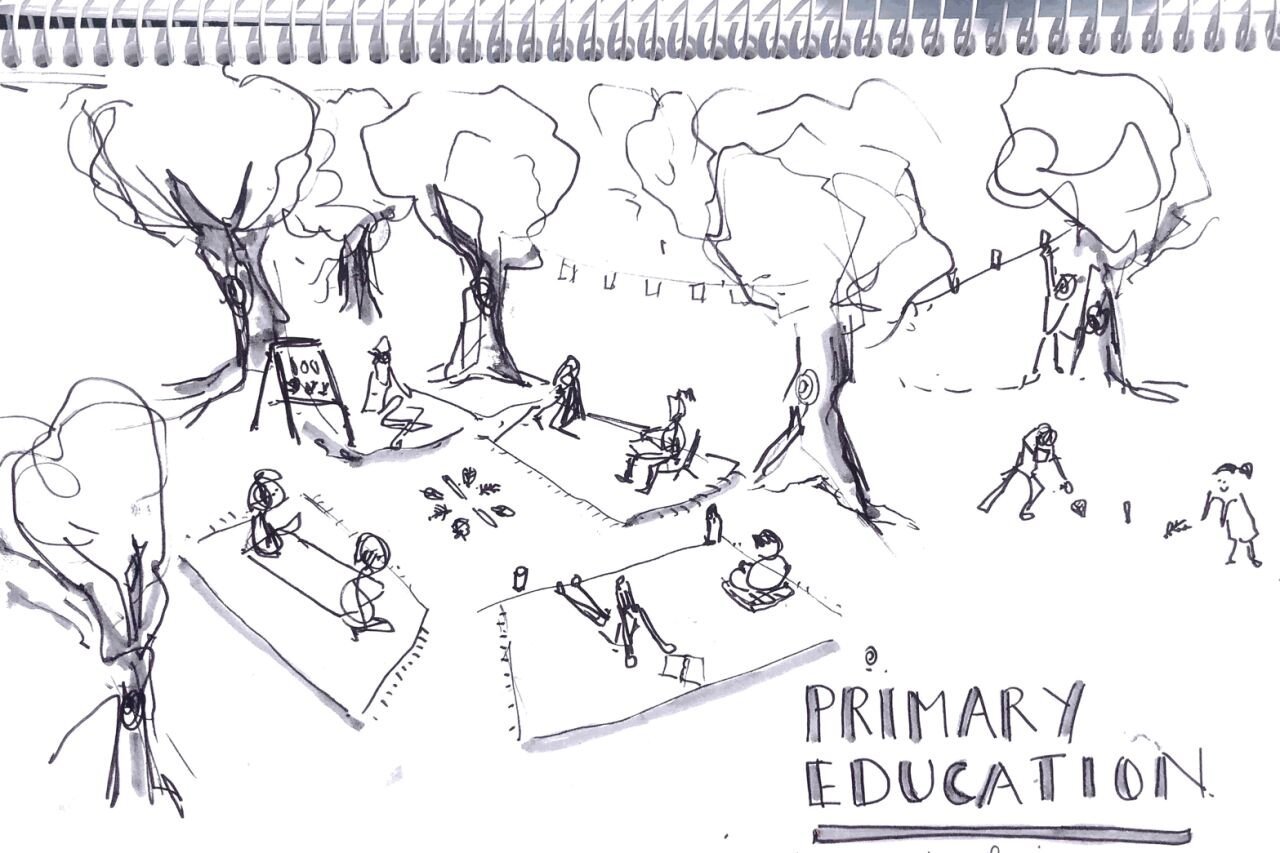 PRIMARY
EDUCATION.